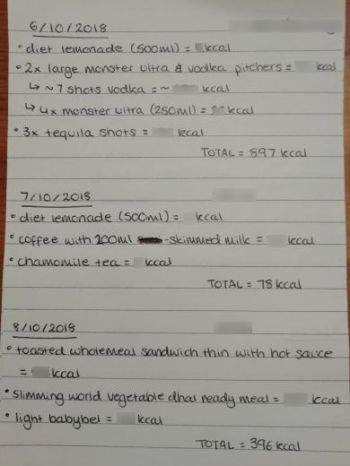 6/10/2018
• diet lemonade (500ml) = kcal
• 2x large monster ultra & vodka pitchers = kcal
↳ ~7 shots vodka = ~ kcal
↳ 4x monster ultra (250ml) = kcal
• 3x tequila shots = kcal
TOTAL = 897 kcal
7/10/2018
• diet lemonade (500ml) = kcal
• coffee with 200ml -skimmed milk = kcal
• chamomile tea = kcal
TOTAL = 78 kcal
8/10/2018
• toasted wholemeal sandwich thin with hot sauce
= kcal
• slimming world vegetable dhal ready meal = kcal
• light babybel = kcal
TOTAL = 396 kcal